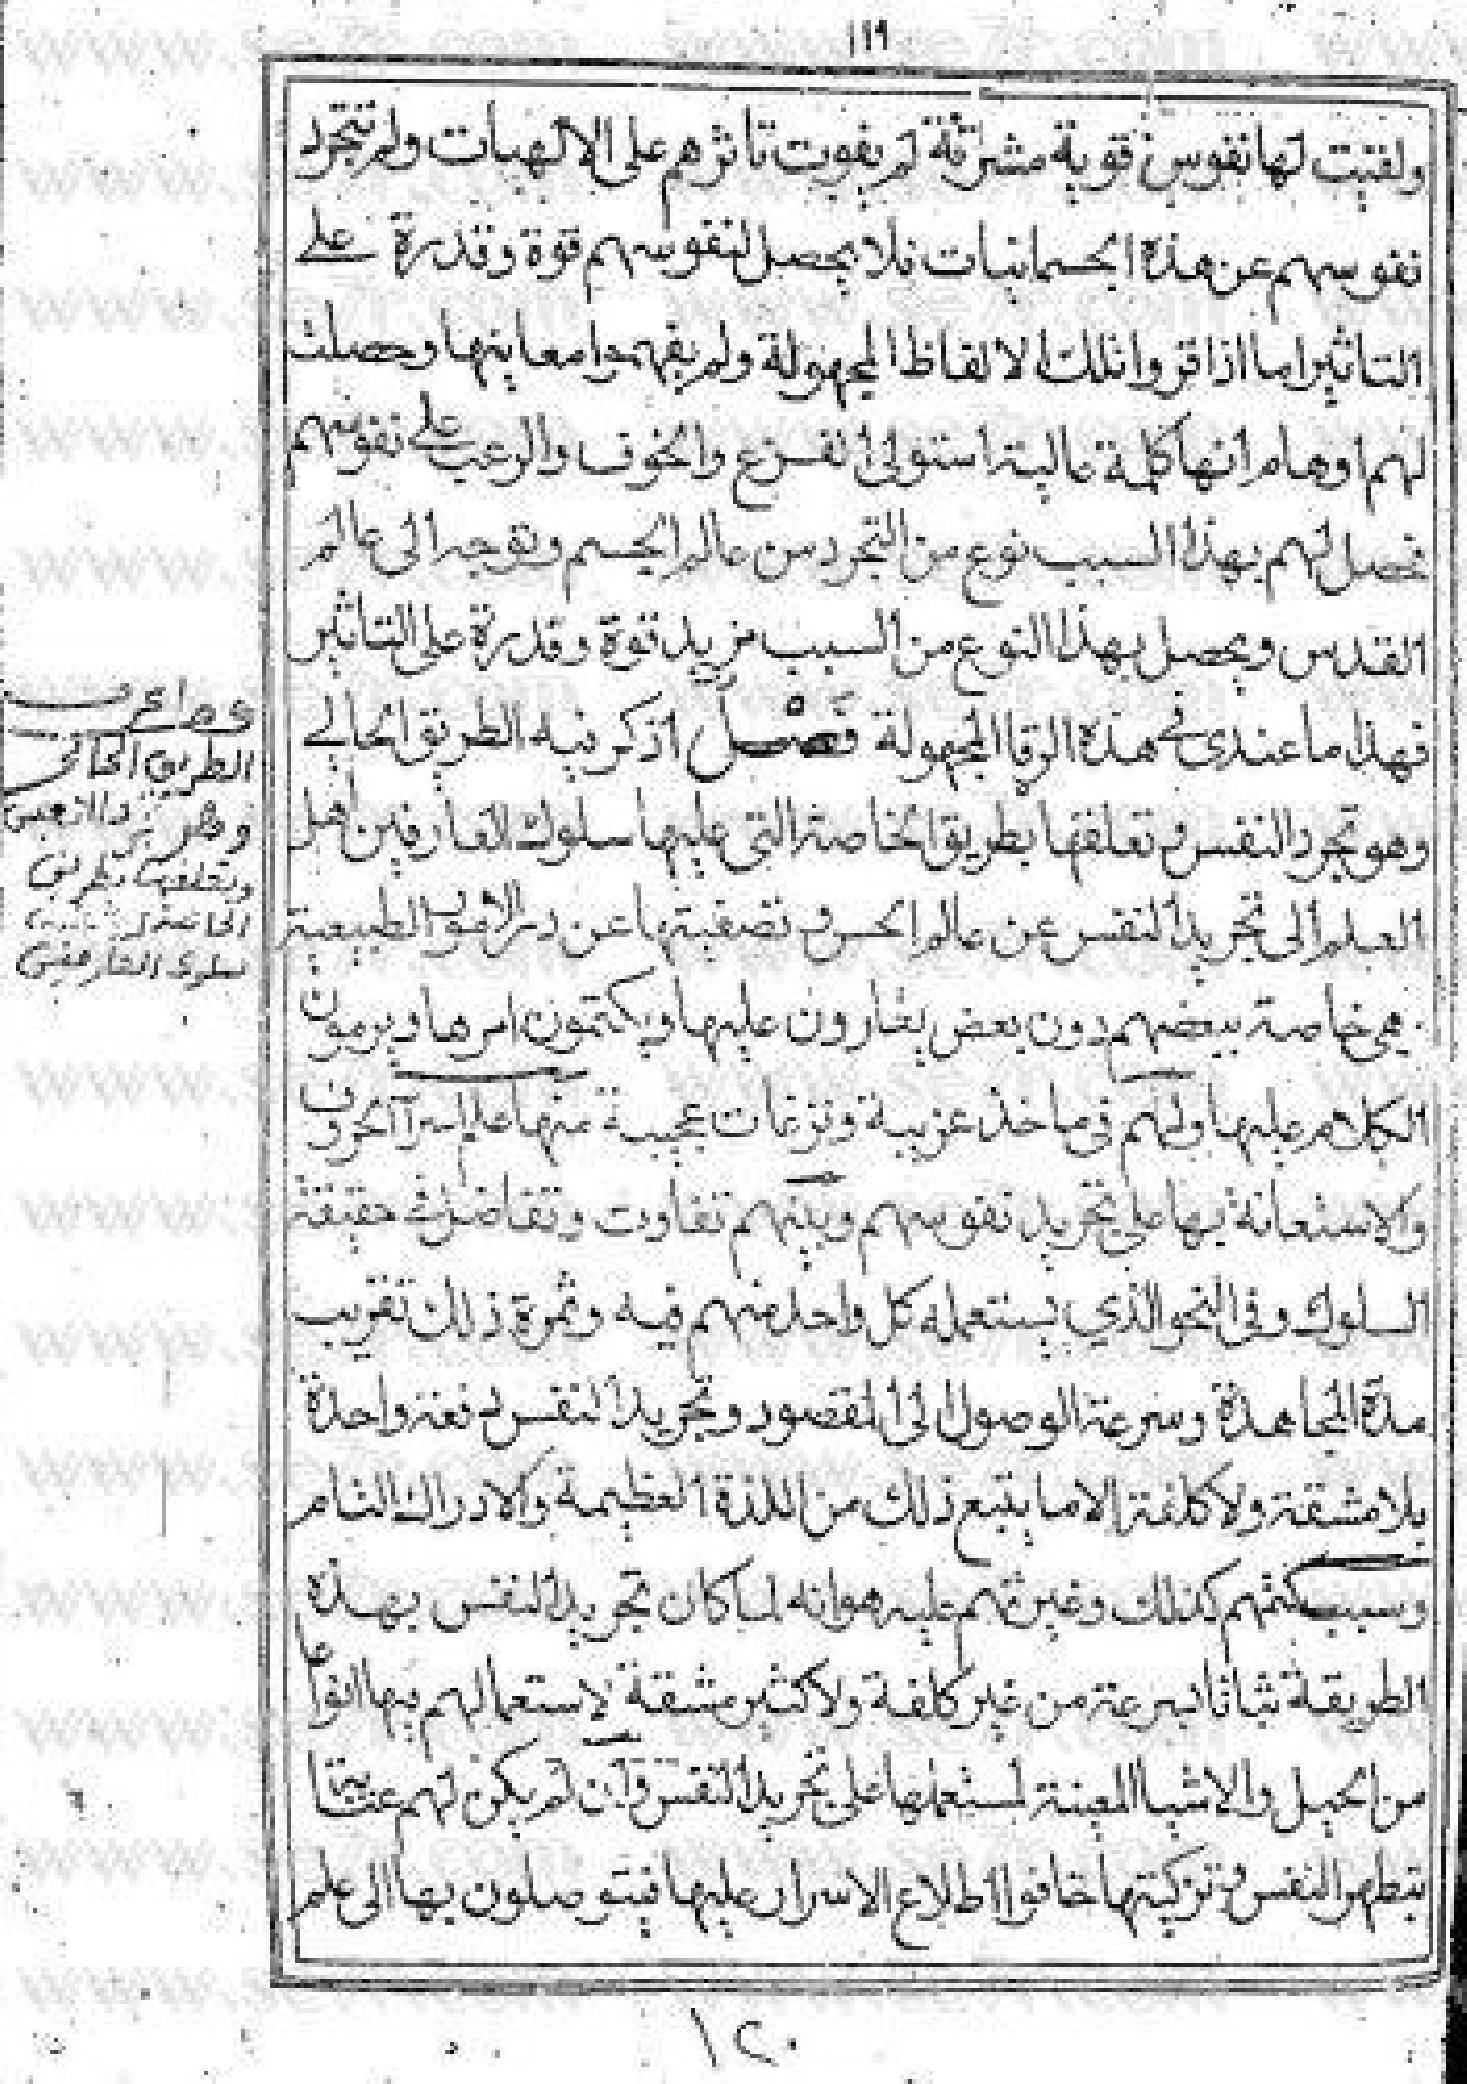 ١١٩
ولقيت لها نفوس قوية مشرقة لم يفوت تأثرهم على الالهيات ولم تتجرد
نفوسهم عن هذه الجسمانيات فلا يحصل لنفوسهم قوة وقدرة على
التاثير اما اذا قروا تلك الالفاظ المجهولة ولم يفهموا معاينها وحصلت
لهم اوهام انها كلمة عالية استولى الفزع والخوف والرعب على نفوسهم
فحصل لهم بهذا السبب نوع من التجرد من عالم الجسم وتوجه الى عالم
القدس ويحصل بهذا النوع من السبب مزيد قوة وقدرة على التاثير
فهذا ما عندى فى هذه الرقا المجهولة فصل اذكر فيه الطريق الحالي
وهو تجرد النفس و تعلقها بطريق الخاصة التى عليها سلوك العارفين اهل
العلم الى تجريد النفس عن عالم الحس و تصفيتها عن درن الامور الطبيعية
هى خاصة ببعضهم دون بعض يغارون عليها ويكتمون امرها ويرمون
الكلام عليها ولهم فى ماخذ غريبة ونزعات عجيبة منها علم اسرار الحروف
والاستعانة بها على تجريد نفوسهم وبينهم تفاوت وتفاضل فى حقيقة
السلوك وفى النحو الذي يستعمله كل واحد منهم فيه وثمرة ذلك تقريب
مدة المجاهدة وسرعة الوصول الى المقصود وتجريد النفس دفعة واحدة
بلا مشقة ولا كلفة الا ما يتبع ذلك من اللذة العظيمة والادراك التام
وسبب كتمهم كذلك وغيرتهم عليه هو انه لما كان تجريد النفس بهذه
الطريقة ثباتا بسرعة من غير كلفة ولا كثير مشقة لاستعمالهم بها انواعا
من الحيل والاشيا المعينة لمستعملها على تجريد النفس وان لم يكن لهم عناية
بتطهر النفس و تزكيتها خافوا اطلاع الاسرار عليها فيتوصلون بها الى علم
الطريق الحالى
وهو
وتعلقها بطريق
الخاصة
سلوك العارفين
١٢٠